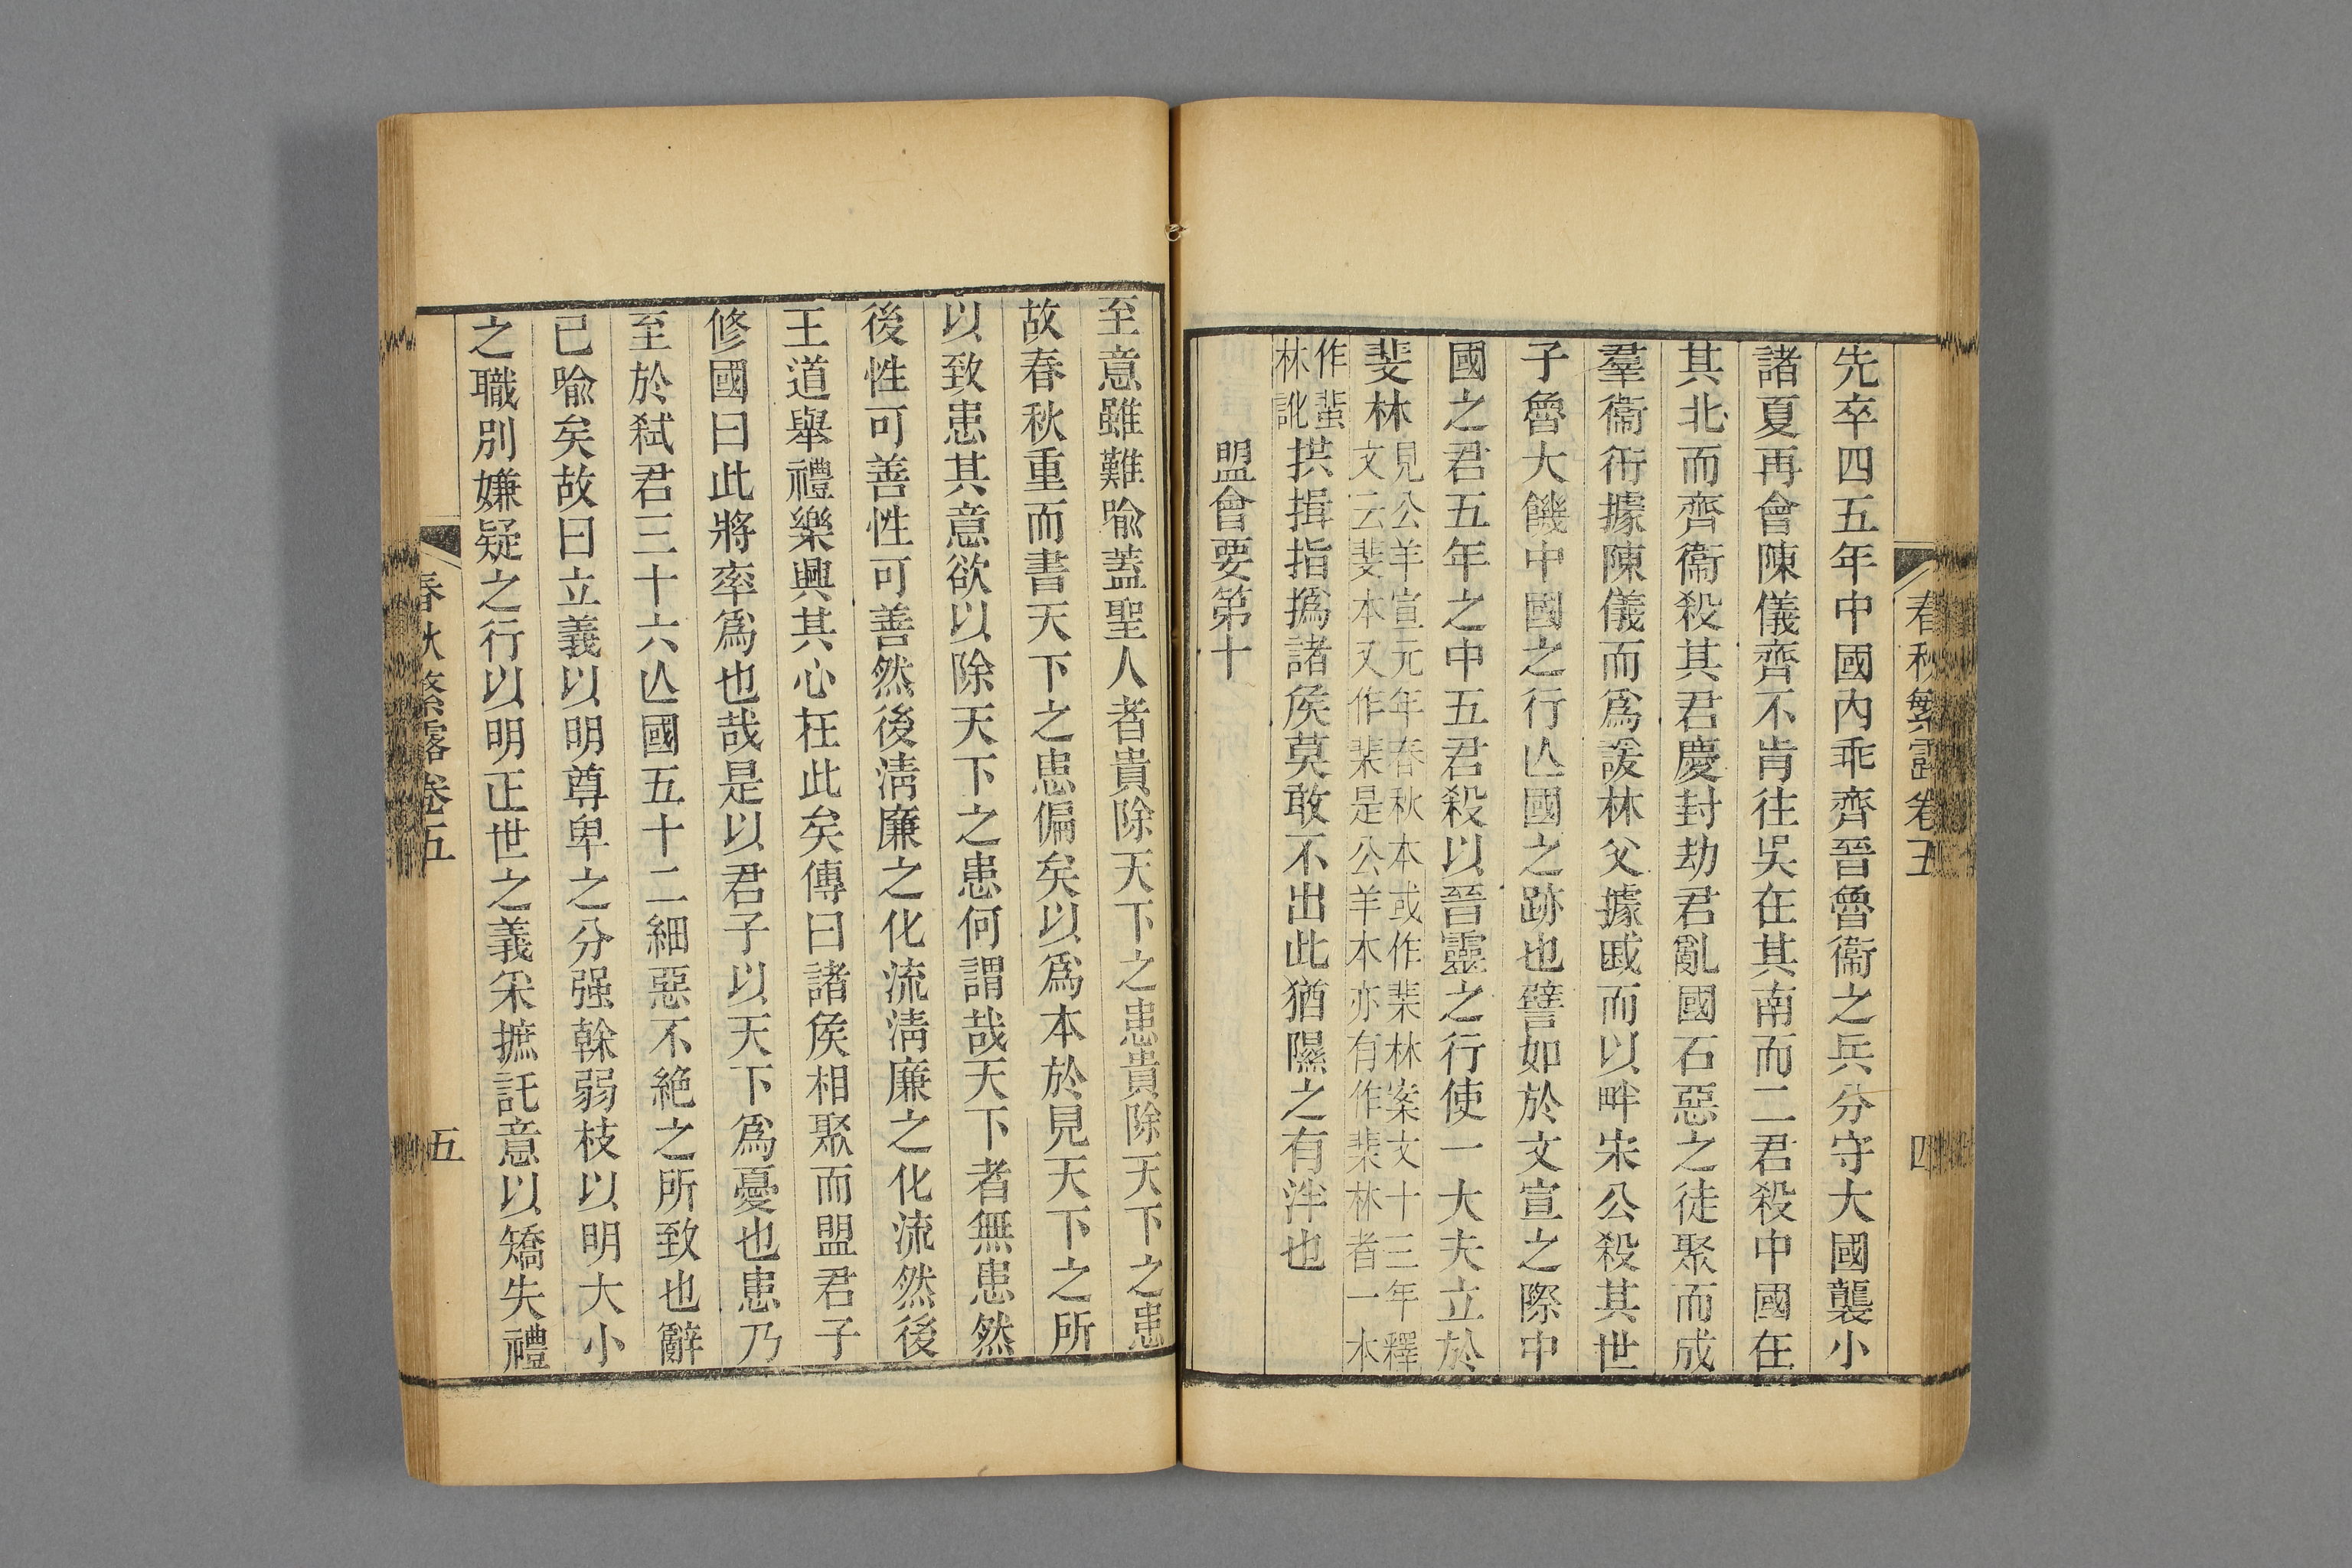 春秋繁露卷五
四
先卒四五年中國內乖齊晉魯衞之兵分守大國襲小
諸夏再會陳儀齊不肯往吳在其南而二君殺中國在
其北而齊衞殺其君慶封劫君亂國石惡之徒聚而成
羣衞衎據陳儀而爲諼林父據戚而以畔宋公殺其世
子魯大饑中國之行亾國之跡也譬如於文宣之際中
國之君五年之中五君殺以晉靈之行使一大夫立於
斐林見公羊宣元年春秋本或作棐林案文十三年釋
文云斐本又作棐是公羊本亦有作棐林者一本
作蜚
林訛拱揖指撝諸侯莫敢不出此猶隰之有泮也
盟會要第十
至意雖難喩蓋聖人者貴除天下之患貴除天下之患
故春秋重而書天下之患偏矣以爲本於見天下之所
以致患其意欲以除天下之患何謂哉天下者無患然
後性可善性可善然後淸廉之化流淸廉之化流然後
王道舉禮樂興其心在此矣傳曰諸侯相聚而盟君子
修國曰此將率爲也哉是以君子以天下爲憂也患乃
至於弑君三十六亾國五十二細惡不絶之所致也辭
已喩矣故曰立義以明尊卑之分强榦弱枝以明大小
之職別嫌疑之行以明正世之義采摭託意以矯失禮
春秋繁露卷五
五